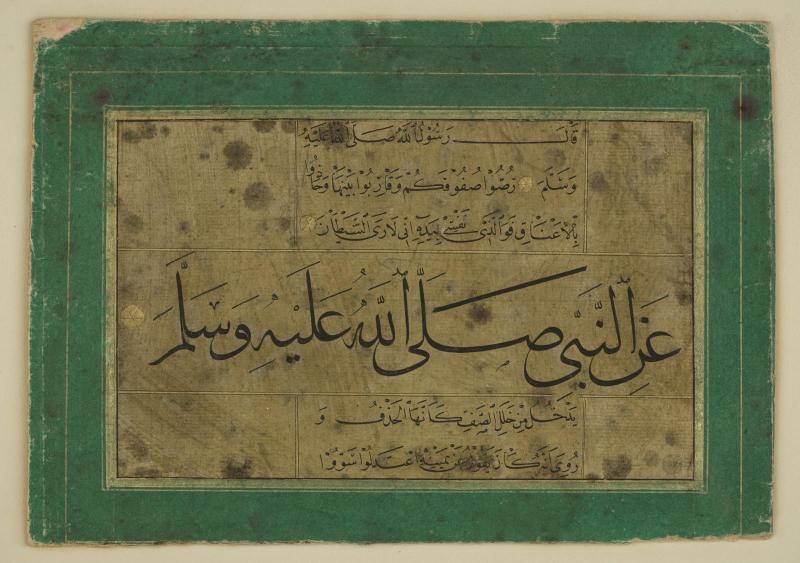 قَالَ رَسُولُ اللَّهِ صَلَّى اللَّهُ عَلَيْهِ
وَسَلَّمَ رُصُّوا صُفُوفَكُمْ وَقَارِبُوا بَيْنَهَا وَحَاذُوا
بِالْأَعْنَاقِ فَوَالَّذِي نَفْسِي بِيَدِهِ إِنِّي لَأَرَى الشَّيْطَانَ
عَنِ النَّبِيِّ صَلَّى اللَّهُ عَلَيْهِ وَسَلَّمَ
يَدْخُلُ مِنْ خَلَلِ الصَّفِّ كَأَنَّهَا الْحَذَفُ وَ
رُوِيَ أَنَّهُ كَانَ يَقُولُ عَنْ يَمِينِهِ اعْتَدِلُوا سَوُّوا